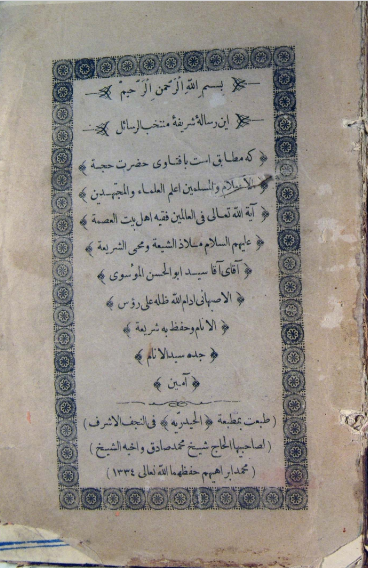 بسم الله الرحمن الرحیم
این رسالۀ شریفۀ منتخب الرسائل
که مطابق است با فتاوی حضرت حجة
الاسلام والمسلمین اعلم العلماء والمجتهدین
آیة الله تعالی فی العالمین فقیه اهل بیت العصمة
علیهم السلام ملاذ الشیعة ومحیی الشریعة
آقای آقا سید ابوالحسن الموسوی
الاصبهانی ادام الله ظله علی رؤس
الانام وحفظ به شریعة
جده سید الانام
آمین
(طبعت بمطبعة ﴿الحیدریّه﴾ فی النجف الاشرف)
(لصاحبها الحاج شیخ محمد صادق واخیه الشیخ)
(محمد ابراهیم حفظهما الله تعالی ۱۳۳۴)